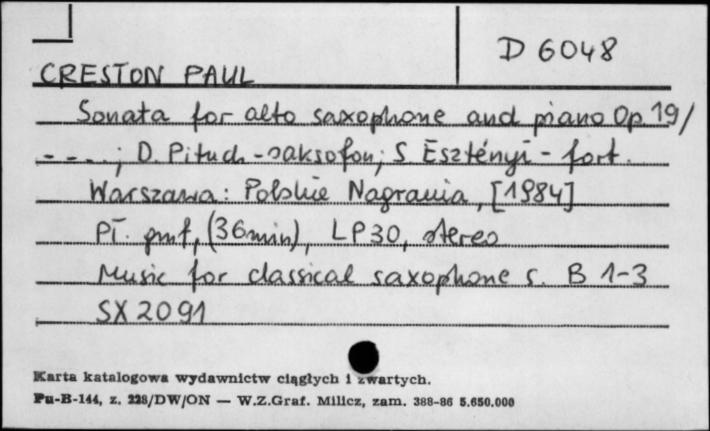 D 6048
CRESTON PAUL
Sonata for alto saxophone and piano Op. 19/
- - - -; D. Pituch - saksofon; S. Esztényi - fort.
Warszawa: Polskie Nagrania, [1984]
Pł. gmf, (36 min), LP 30, stereo
Music for classical saxophone s. B 1-3
SX 2091
Karta katalogowa wydawnictw ciągłych i zwartych.
Pu-B-144, z. 228/DW/ON — W.Z.Graf. Milicz, zam. 388-86 5.650.000